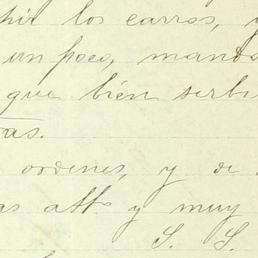 hir los carros, y
un poco, mando
que bién serbi
as.
ordenes, y de
as atto y muy
S. S.